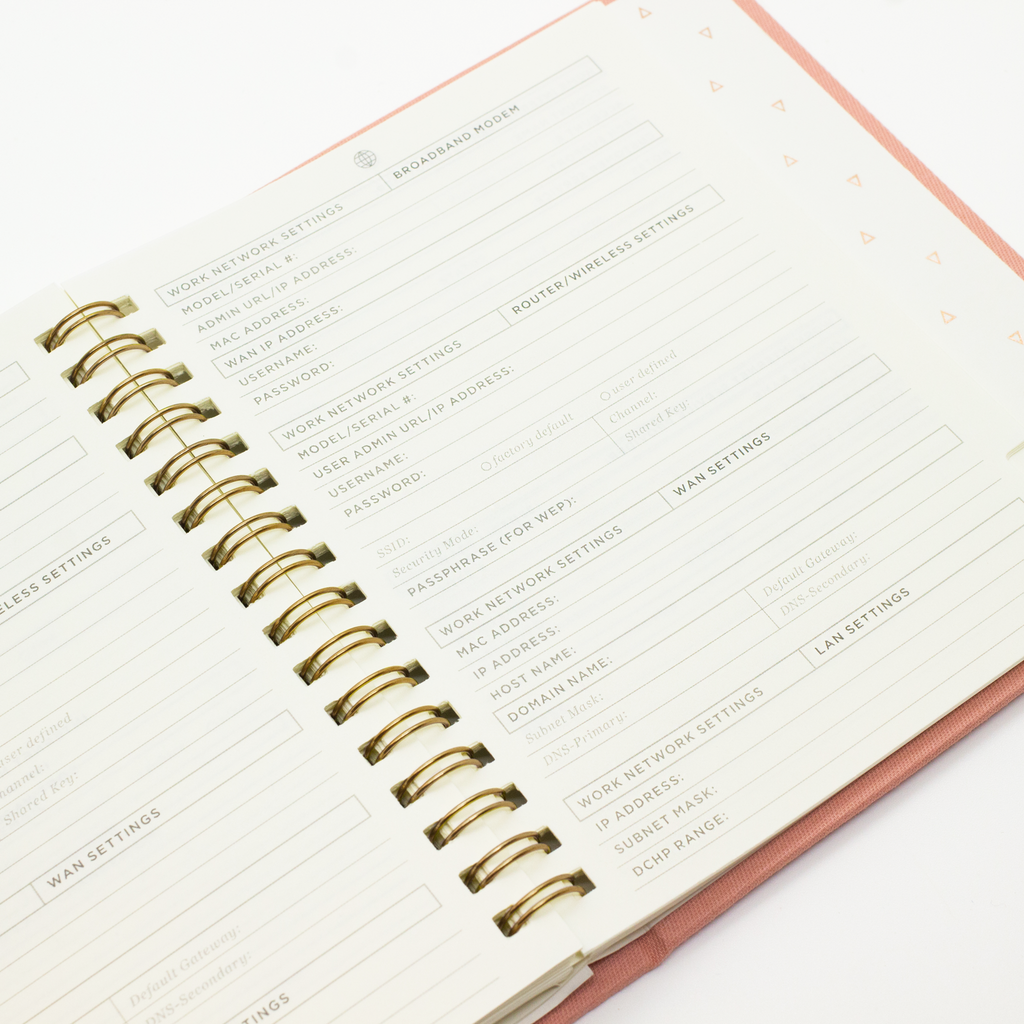 ELESS SETTINGS
user defined
Channel:
Shared Key:
WAN SETTINGS
Default Gateway:
DNS-Secondary:
TINGS
WORK NETWORK SETTINGS BROADBAND MODEM
MODEL/SERIAL #:
ADMIN URL/IP ADDRESS:
MAC ADDRESS:
WAN IP ADDRESS:
USERNAME:
PASSWORD:
WORK NETWORK SETTINGS ROUTER/WIRELESS SETTINGS
MODEL/SERIAL #:
USER ADMIN URL/IP ADDRESS:
USERNAME:
PASSWORD: factory default user defined
Channel:
SSID: Shared Key:
Security Mode:
PASSPHRASE (FOR WEP):
WORK NETWORK SETTINGS WAN SETTINGS
MAC ADDRESS:
IP ADDRESS:
HOST NAME:
DOMAIN NAME:
Subnet Mask: Default Gateway:
DNS-Primary: DNS-Secondary:
WORK NETWORK SETTINGS LAN SETTINGS
IP ADDRESS:
SUBNET MASK:
DCHP RANGE: